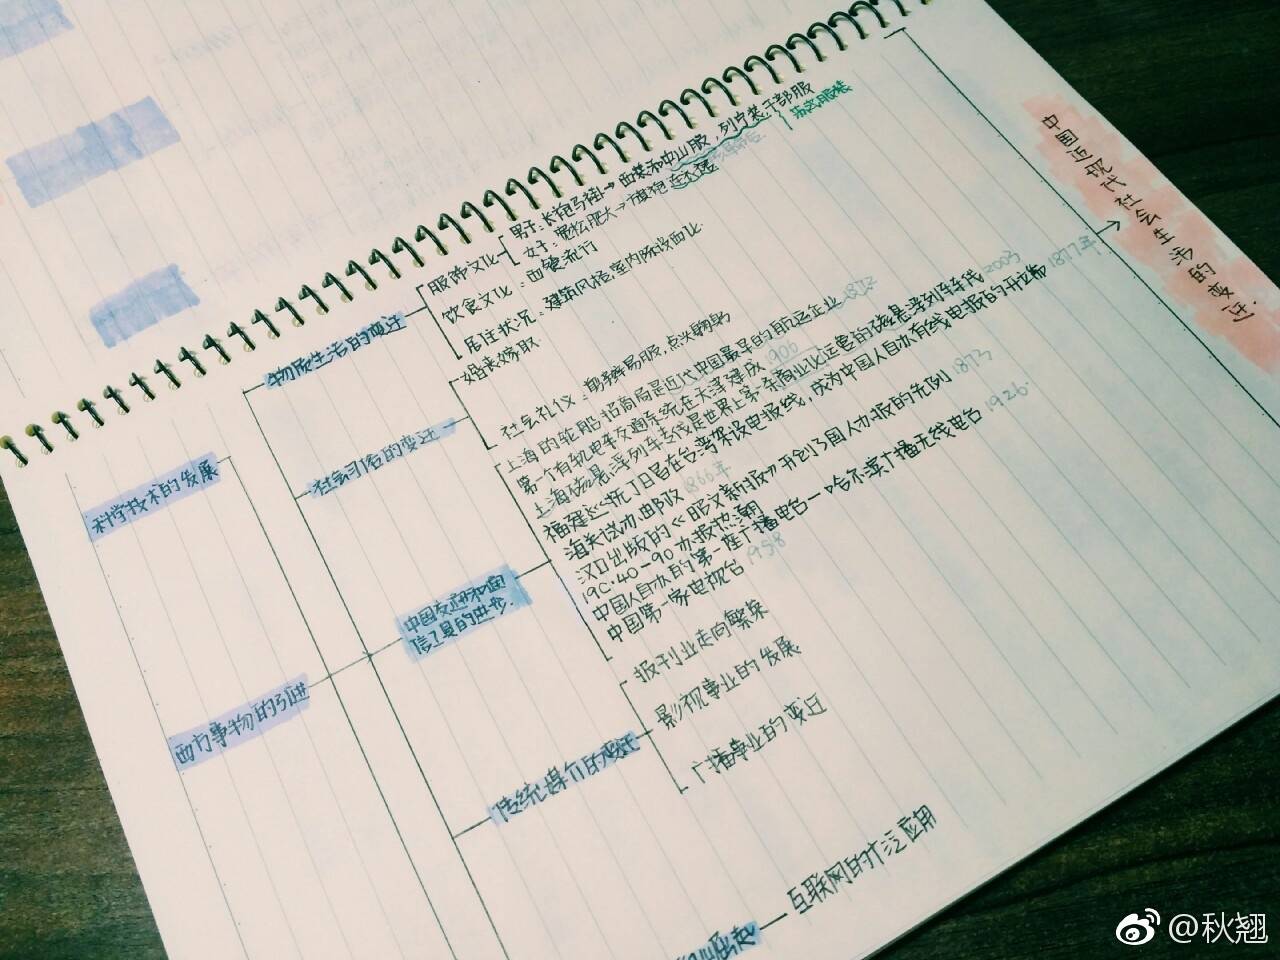 中国近现代社会生活的变迁.
科学技术的发展
西方事物的引进
物质生活的变迁
服饰文化
男子:长袍马褂→西装和中山服,列宁装干部服
女子:宽松肥大→旗袍 连衣裙
饮食文化:西餐流行
居住状况:建筑风格室内陈设西化
婚丧嫁取
社会习俗的变迁
社会礼仪:
易服,点头鞠躬
中国交通和通信工具的进步.
上海的轮船招商局是近代中国最早的航运企业 1872
第一个有轨电车交通系统在天津建成 1906
上海磁悬浮列车专线是世界上第一条商业化运营的磁悬浮列车专线 2003
福建巡抚丁日昌在台湾架设电报线,成为中国人自办有线电报的开端 1877年
海关试办邮政 1866年
汉口出版的《昭文新报》开创了国人办报的先例 1873
19C·40-90办报热潮
中国人自办的第一座广播电台—哈尔滨广播无线电台 1926
中国第一家电视台 1958
传统媒介的变迁
报刊业走向繁荣
影视事业的发展
广播事业的变迁
崛起
互联网的广泛应用
@秋翘